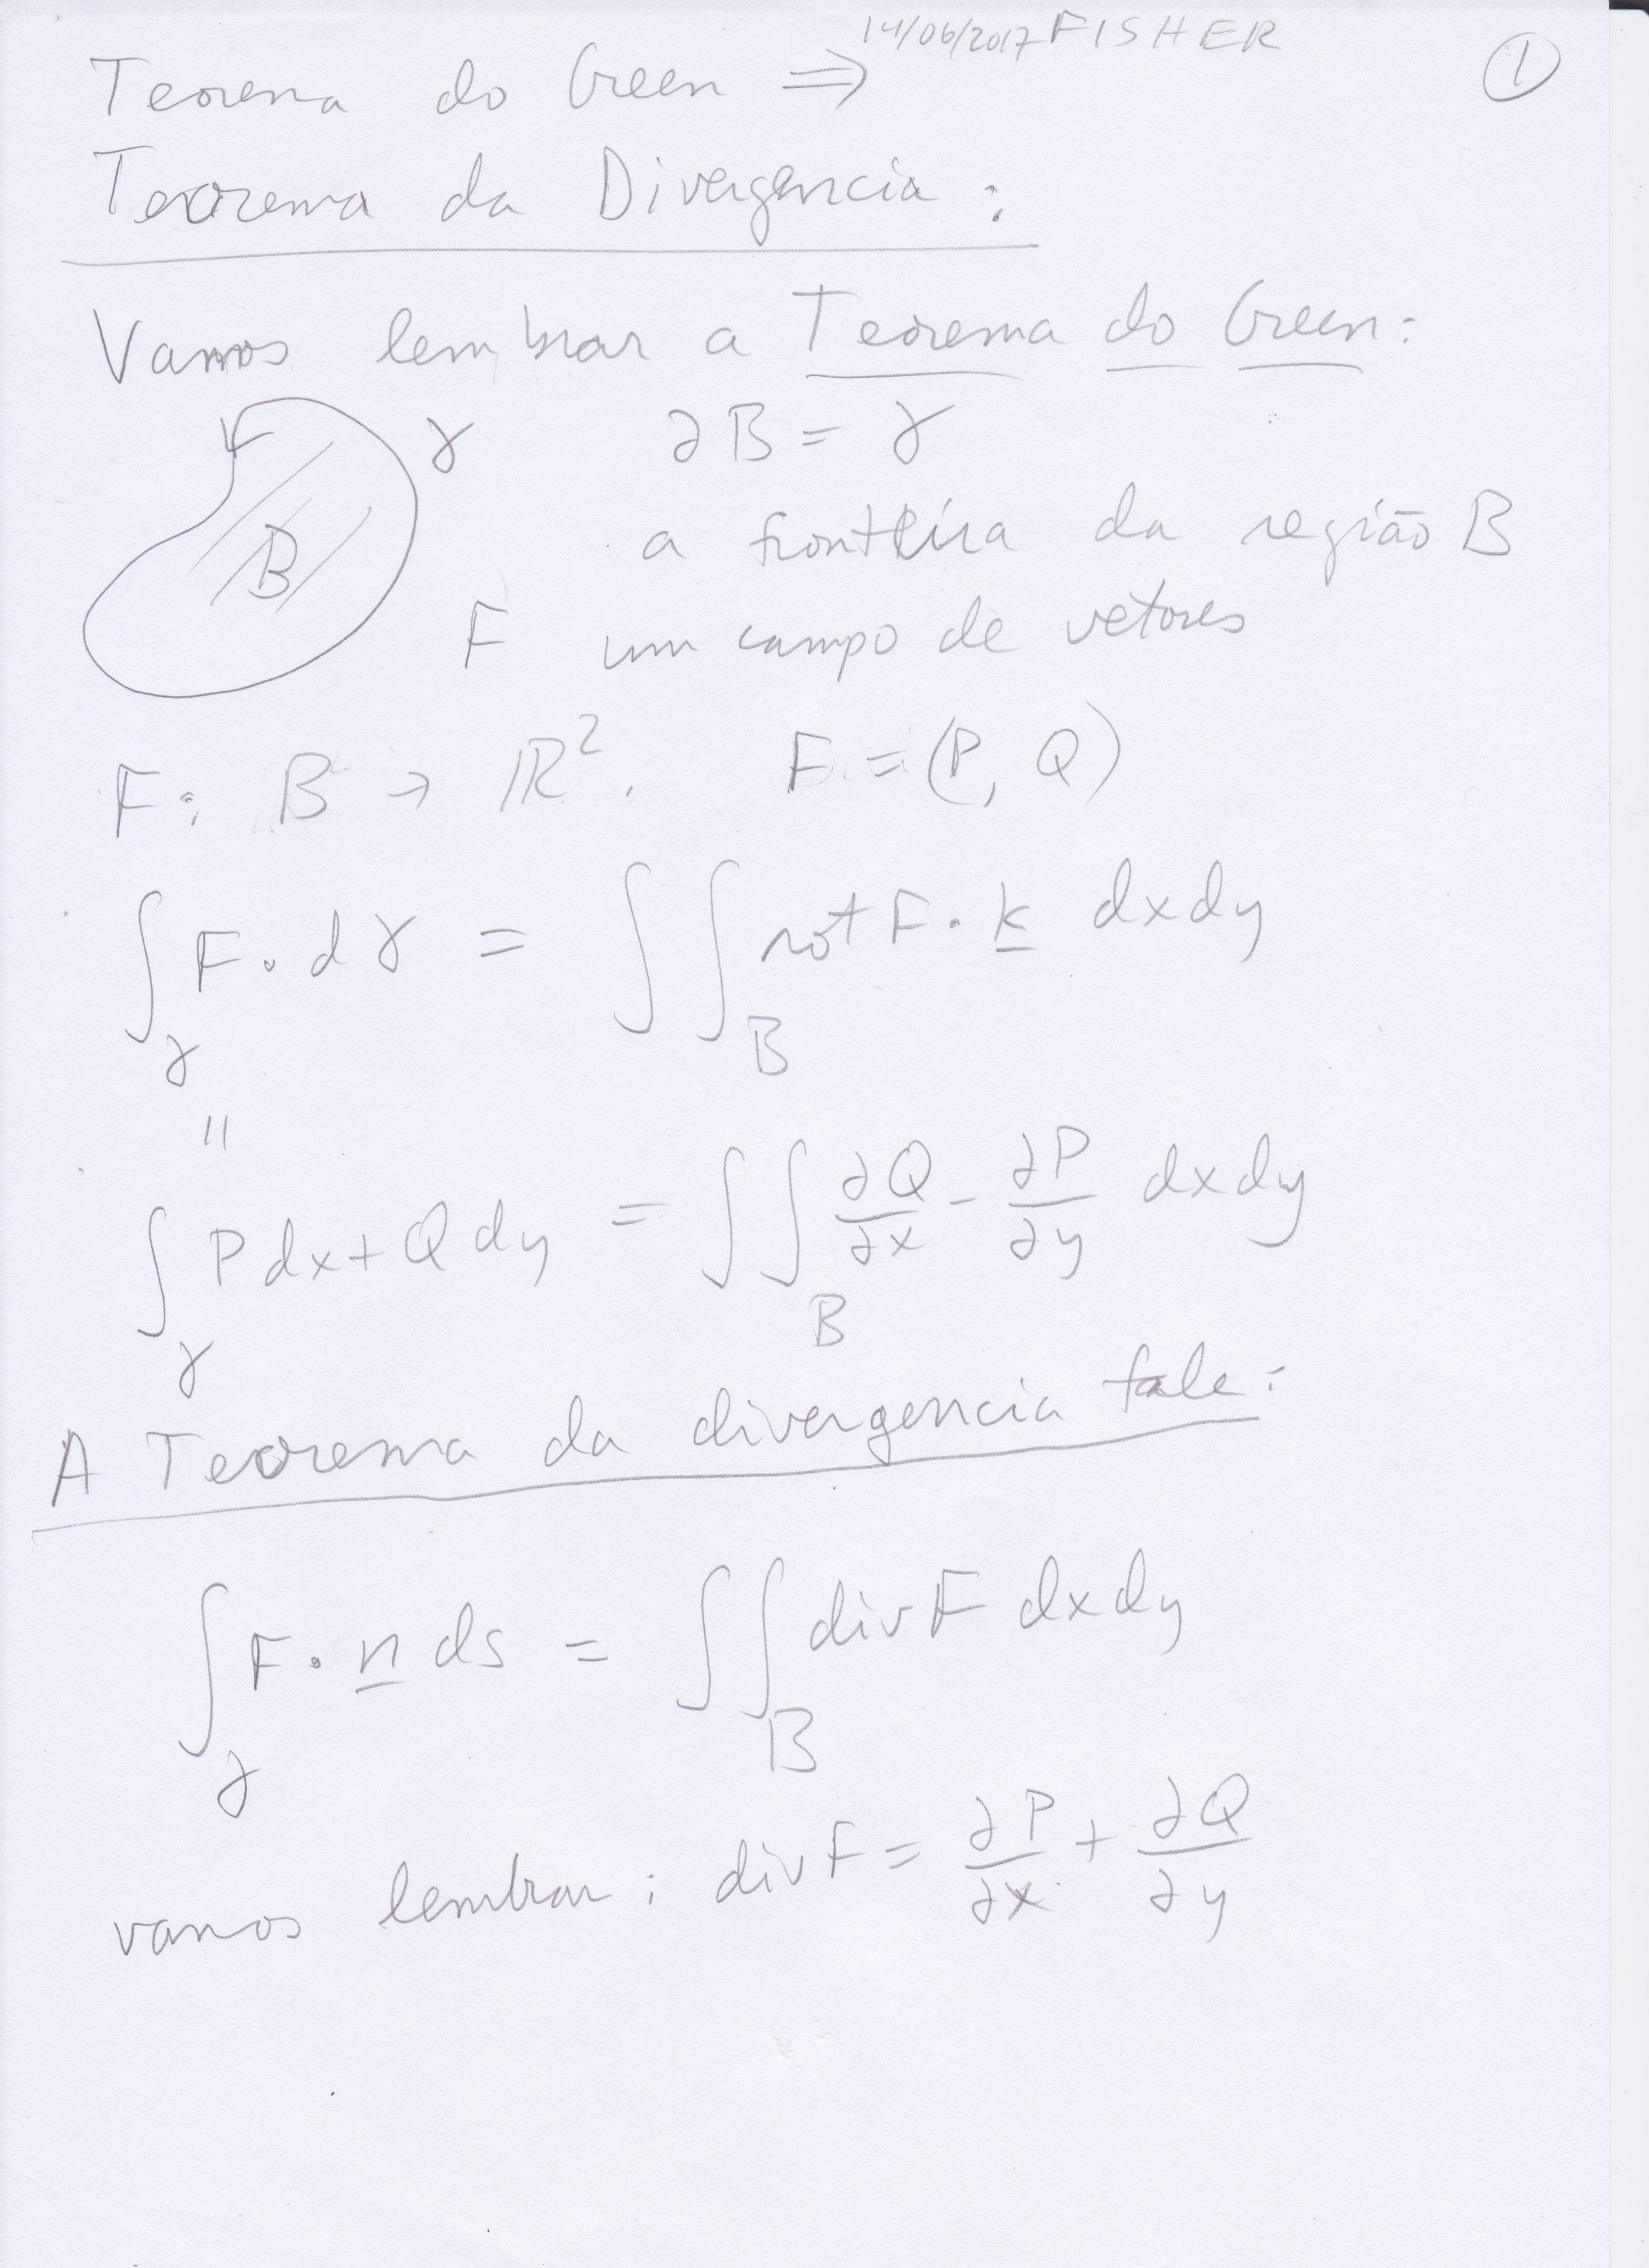 14/06/2017 FISHER
①
Teorema do Green ⇒
Teorema da Divergencia:
Vamos lembrar a Teorema do Green:
γ ∂B = γ
B
a fronteira da região B
F um campo de vetores
F: B → ℝ². F = (P, Q)
∫_γ F · dγ = ∫∫_B rot F · k dxdy
=
∫_γ P dx + Q dy = ∫∫_B ∂Q/∂x - ∂P/∂y dxdy
A Teorema da divergencia fale:
∫_γ F · n ds = ∫∫_B div F dxdy
vamos lembrar: div F = ∂P/∂x + ∂Q/∂y